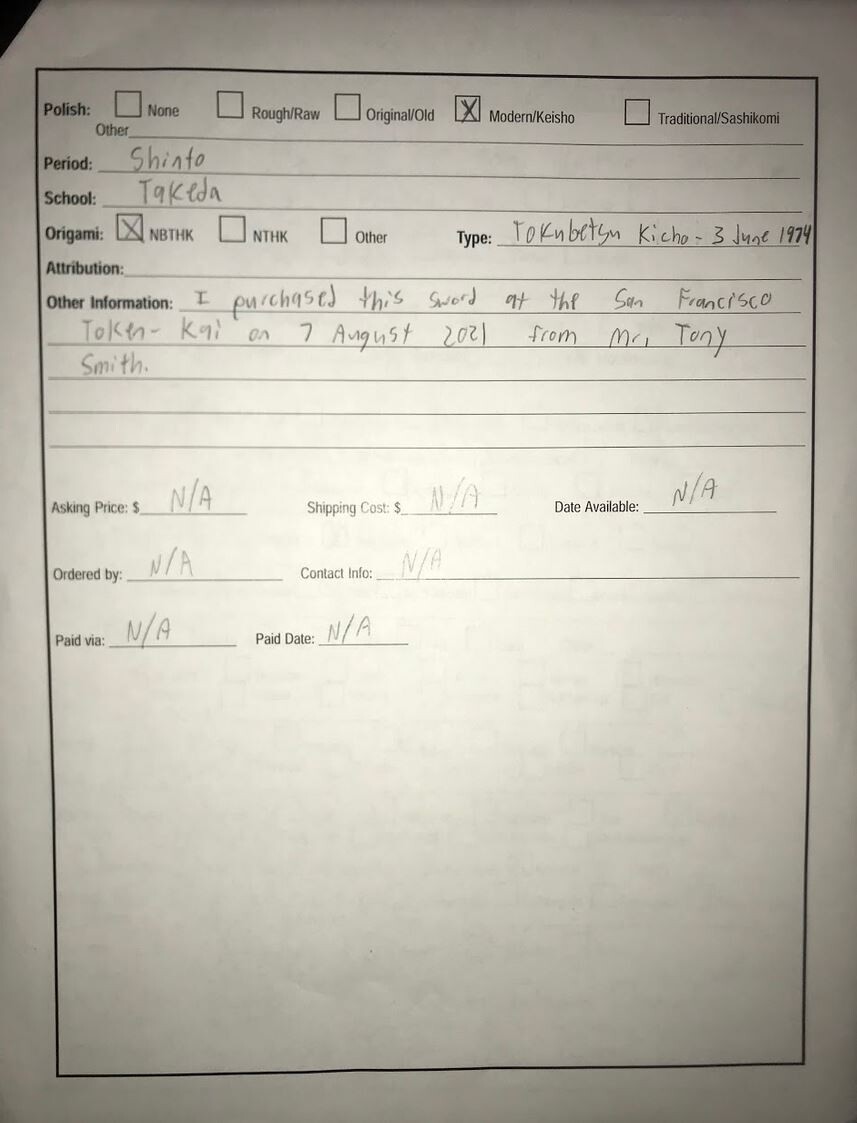 Polish: None Rough/Raw Original/Old X Modern/Keisho Traditional/Sashikomi
Other
Period: Shinto
School: Takeda
Origami: X NBTHK NTHK Other Type: Tokubetsu Kicho - 3 June 1974
Attribution:
Other Information: I purchased this sword at the San Francisco
Token-Kai on 7 August 2021 from Mr. Tony
Smith.
Asking Price: $ N/A Shipping Cost: $ N/A Date Available: N/A
Ordered by: N/A Contact Info: N/A
Paid via: N/A Paid Date: N/A